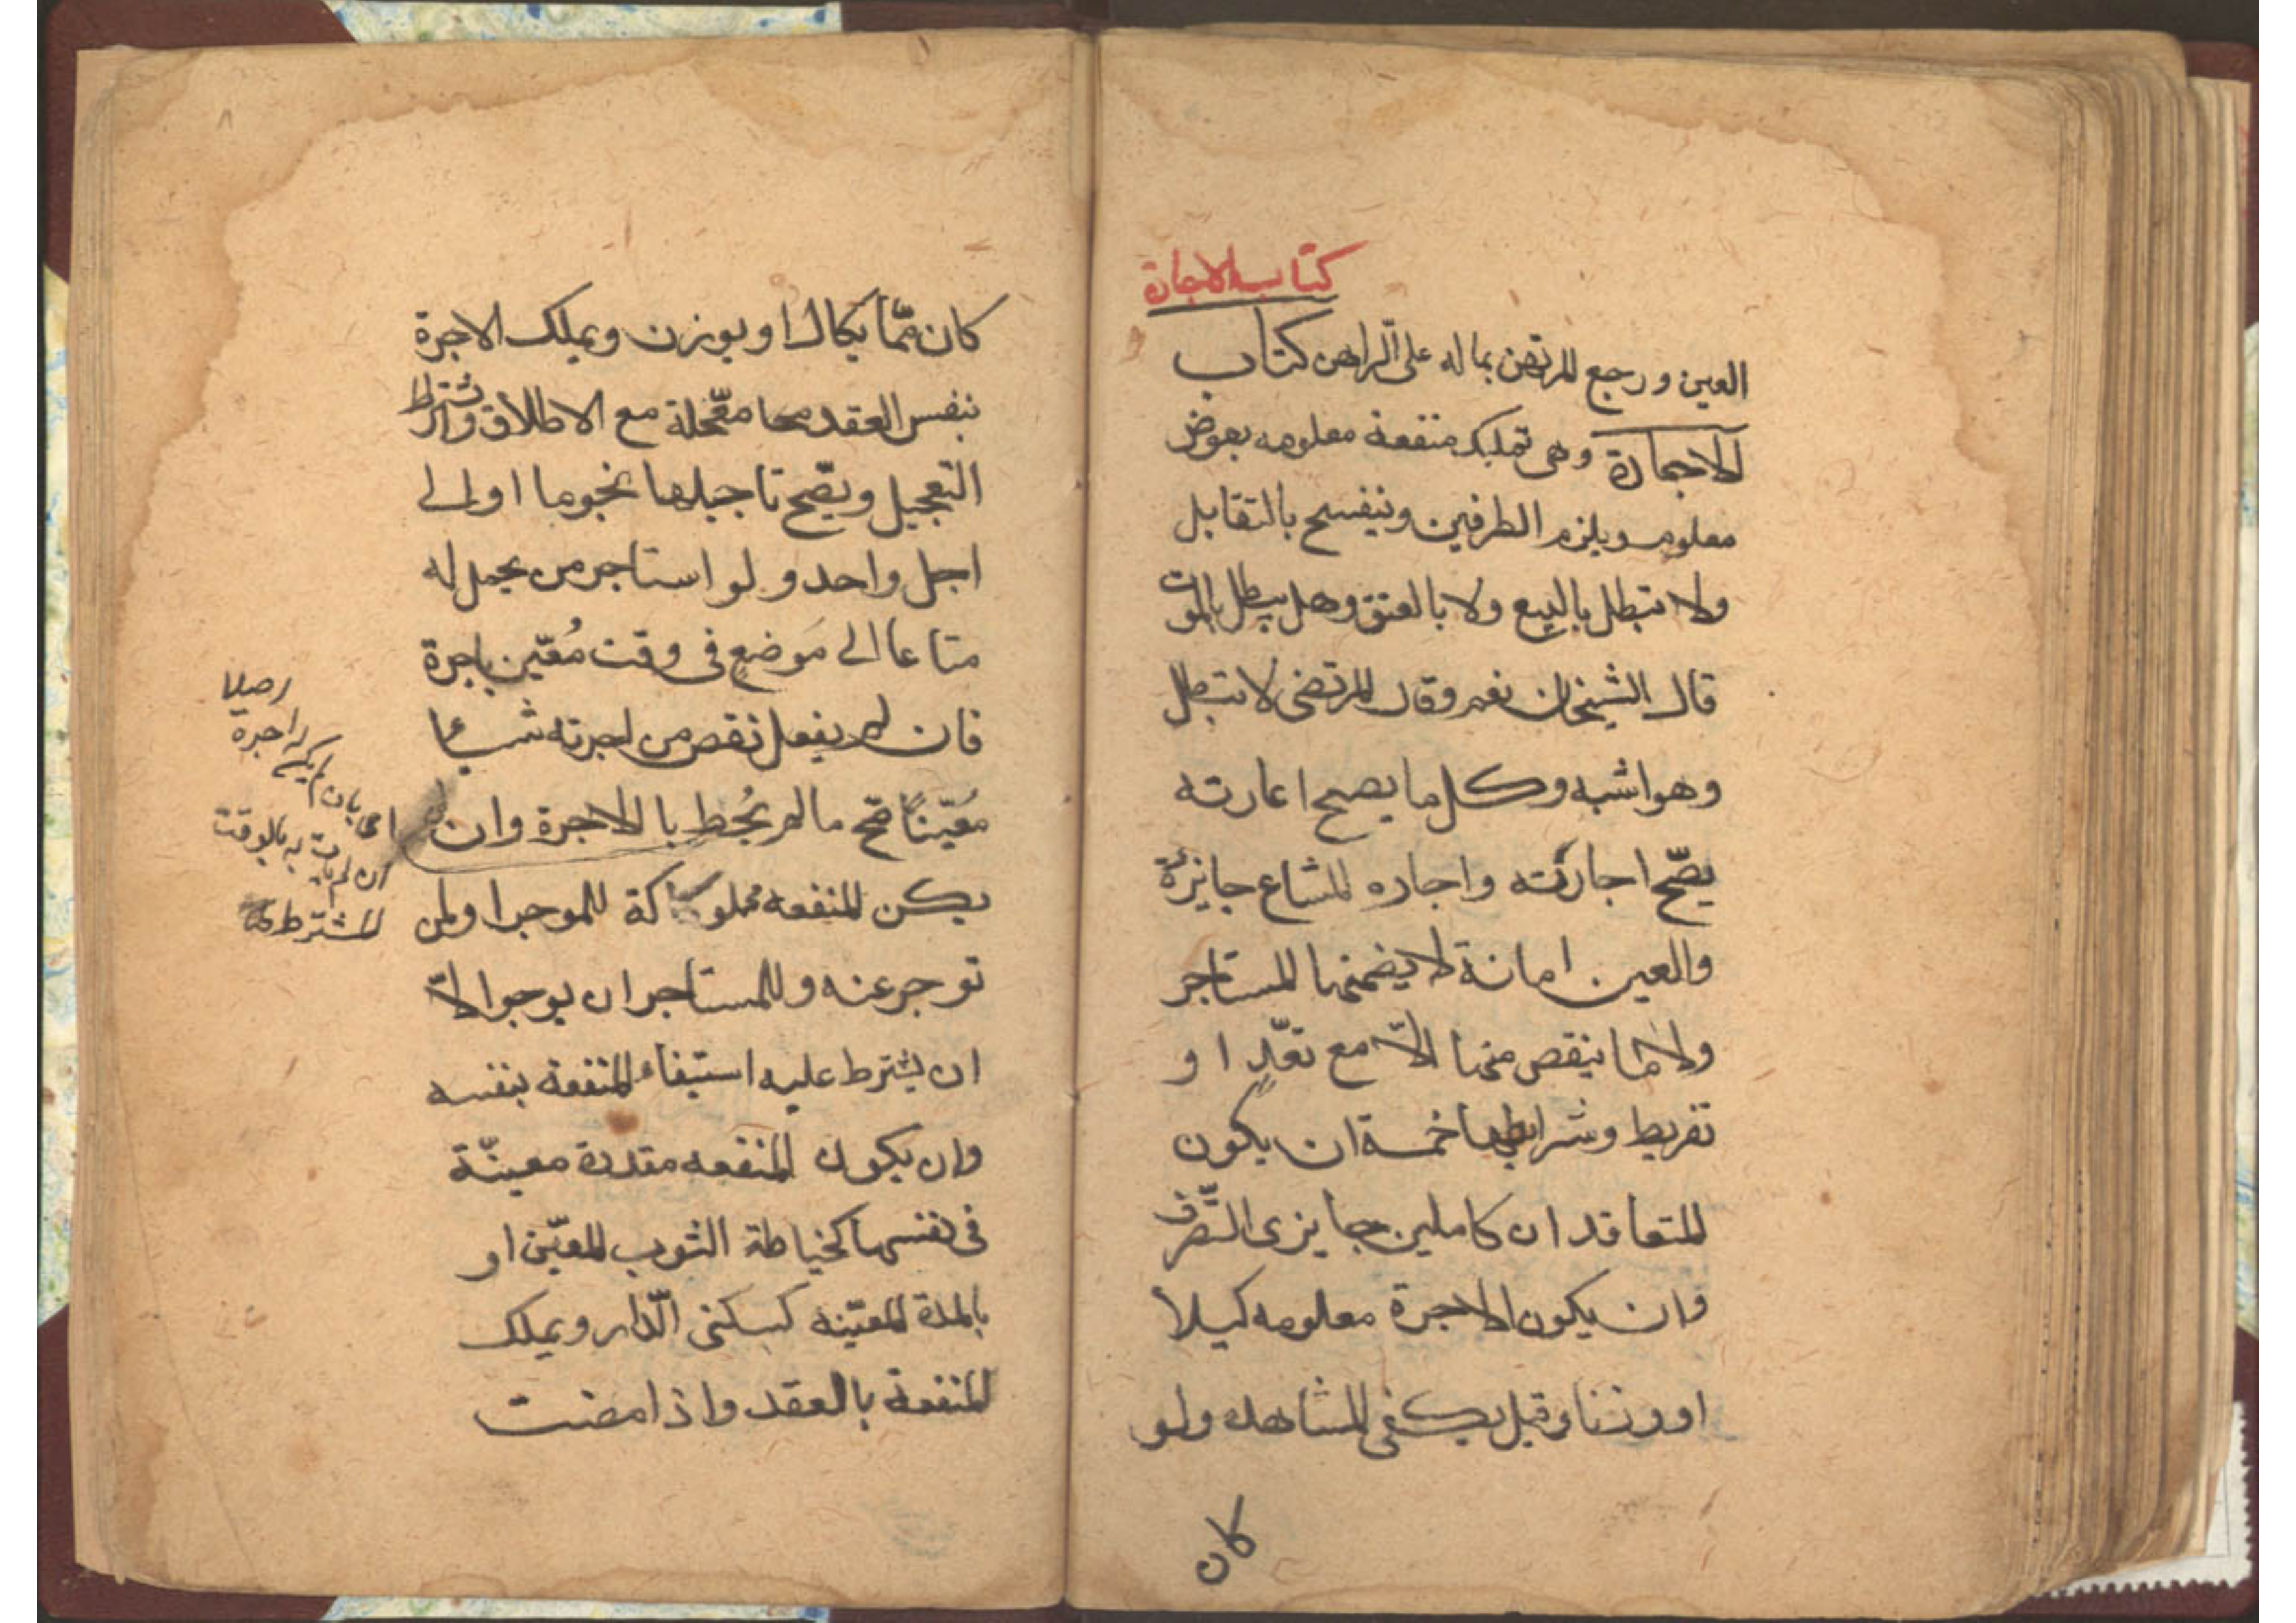 كتاب الاجارة
العين ورجع المرتهن بماله على الراهن كتاب
الاجارة وهى تمليك منفعة معلومه بعوض
معلوم ويلزم الطرفين وينفسح بالتقايل
ولا تبطل بالبيع ولا بالعتق وهل يبطل بالموت
قال الشيخان نعم وقال المرتضى لا تبطل
وهو اشبه وكل ما يصح اعارته
يصّح اجارته واجاره المشاع جايزة
والعين امانة لا يضمنها المستاجر
ولا ما ينقص منها الاّ مع تعّدٍ او
تفريط وشرايطها خمسة ان يكون
المتعاقدان كاملين جايزى التّصرف
وان يكون الاجرة معلومه كيلاً
او وزنا وقيل يكفى المشاهده ولو
كان
كان ممّا يكال او يوزن ويملك الاجرة
بنفس العقد معجّلة مع الاطلاق واشتراط
التعجيل ويصّح تاجيلها نجوما او الى
اجل واحد ولو استاجر من يحمل له
متاعا الى مَوضعٍ فى وقت مُعّين باجرة
فان لم يفعل نقص من اجرته شيئا
مُعّيناً صّح ما لم يُحط بالاجرة وان
يكن المنفعه مملوكة للموجر او لمن
توجر عنه وللمستاجر ان يوجر الاّ
ان يشترط عليه استيفاء المنفعة بنفسه
وان يكون المنفعه مقدرة معينّة
فى نفسها كخياطة الثوب المعّين او
بالمدة المعّينه كسكنى الّدار ويملك
المنفعة بالعقد واذا مضت
اى بان لم يكن له اجرة
اصلا
ان لم يات به بالوقت
المشترط